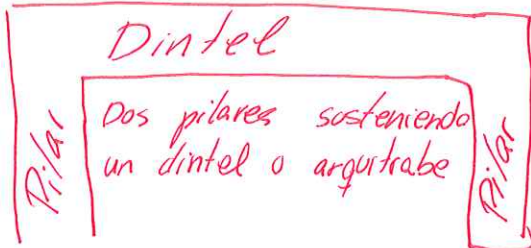 Dintel
Pilar
Dos pilares sosteniendo
un dintel o arquitrabe
Pilar